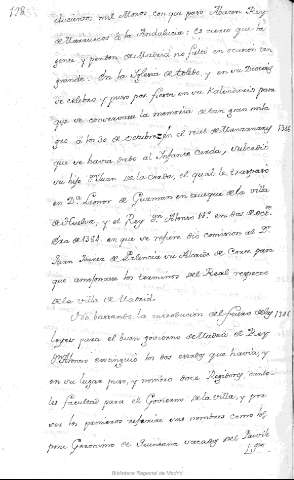 178
mil Moros con que paso Rey
de Marruecos de la Andalucia: Es cierto que la
gente y pendon de Madrid no faltò en ocasion tan
grande. En la Yglesia de toledo, y en su Diocesis
se celebra, y puso por fiesta en su Kalendario para
que se conservase la memoria de tan gran mila
gro à los 30 de octubre. En el real de Manzanares 1346
que se havia dado al Infante Cerda, subcedio
su hijo Juan de la Cerda, el qual le traspasò
en D.ª Leonor de Guzman en trueque de la villa
de Huelva, y el Rey D.n Alonso
bre de 1384. en que se refiere diò comision al D.r
Juan de Palencia su Alcalde de Corte para
que amojonase los terminos del Real respecto
de la villa de Madrid.
No bastando, la
Leyes para el buen govierno de Madrid el Rey
D.n Alonso extinguiò los dos que havia, y
en su lugar puso, y nombro doce Regidores con
facultad para el Govierno de la villa, y por
ser los primeros sus nombres como los
pone Geronimo de Quintana sacados del
Biblioteca Regional de Madrid